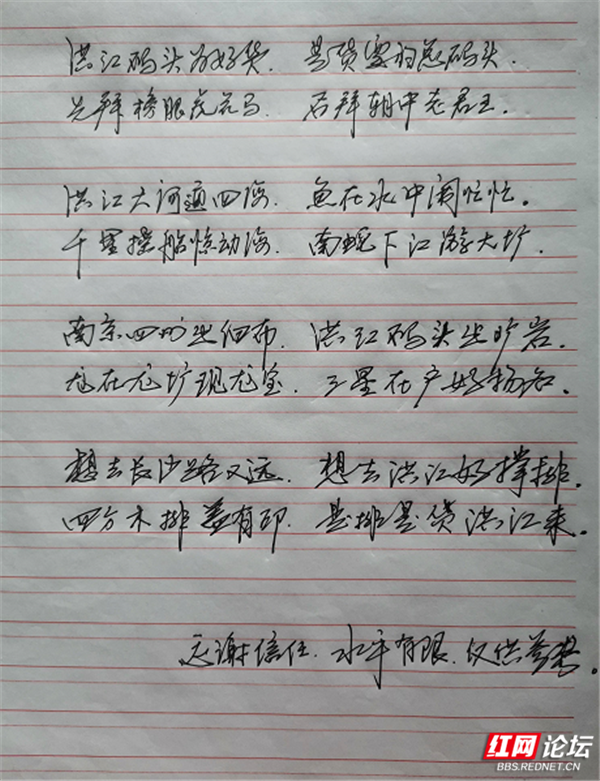 洪江码头为好货. 是货客的是码头.
先拜 眼虎 马. 后拜朝中老君王.
洪江大河通四海. 鱼在水中闹忙忙.
千里撑船惊动海. 南 下江游大圹.
南京四 出细布. 洪江码头出旷岩.
龙在龙圹现龙宝. 三星在户好扬名.
想去长沙路又远. 想去洪江好撑排.
四方木排盖有印. 是排是货洪江来.
谢信任. 水平有限. 仅供参考.
红网论坛
BBS.REDNET.CN